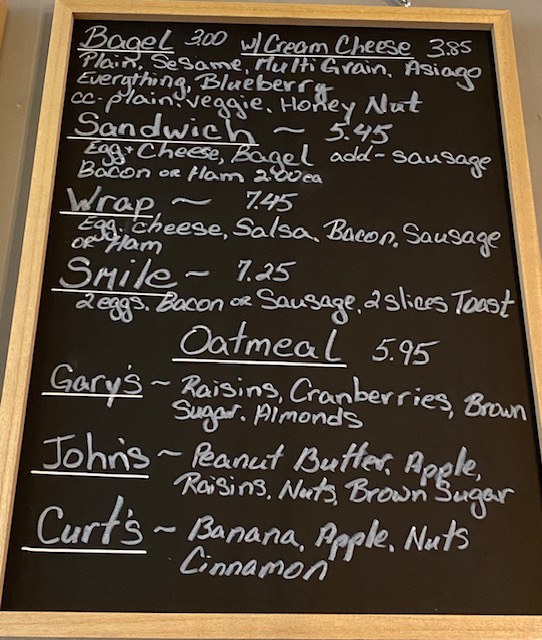 Bagel 3.00 w/Cream Cheese 3.85
Plain, Sesame, Multi Grain, Asiago
Everything, Blueberry
cc-plain, veggie, Honey Nut
Sandwich ~ 5.45
Egg + Cheese, Bagel add-sausage
Bacon or Ham 2.00 ea
Wrap ~ 7.45
Egg, cheese, Salsa, Bacon, Sausage
or Ham
Smile ~ 7.25
2 eggs, Bacon or Sausage, 2 slices Toast
Oatmeal 5.95
Gary's ~ Raisins, Cranberries, Brown
Sugar, Almonds
John's ~ Peanut Butter, Apple,
Raisins, Nuts, Brown Sugar
Curt's ~ Banana, Apple, Nuts
Cinnamon